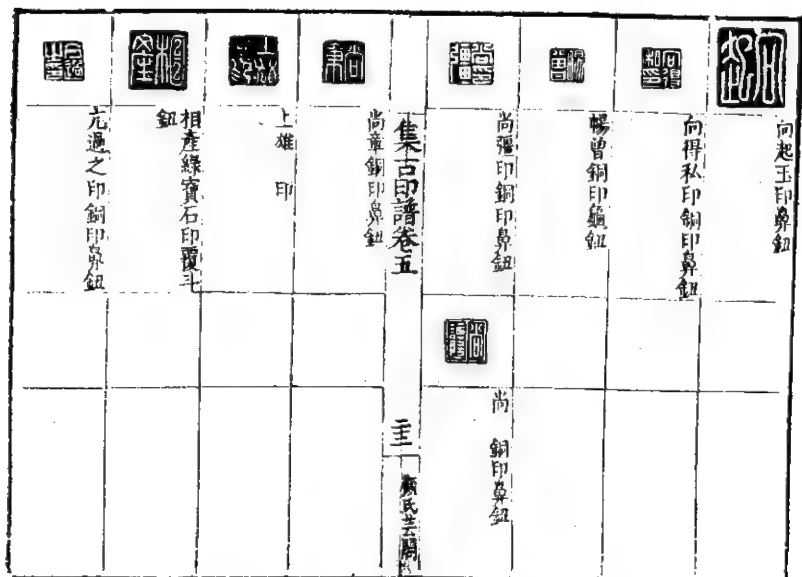 向起玉印鼻鈕
向得私印銅印鼻鈕
暢曾銅印龜鈕
尚彊印銅印鼻鈕
尚 銅印鼻鈕
集古印譜卷五
顧氏芸閣
尚章銅印鼻鈕
上雄 印
相產綠寶石印覆斗
鈕
亢過之印銅印鼻鈕